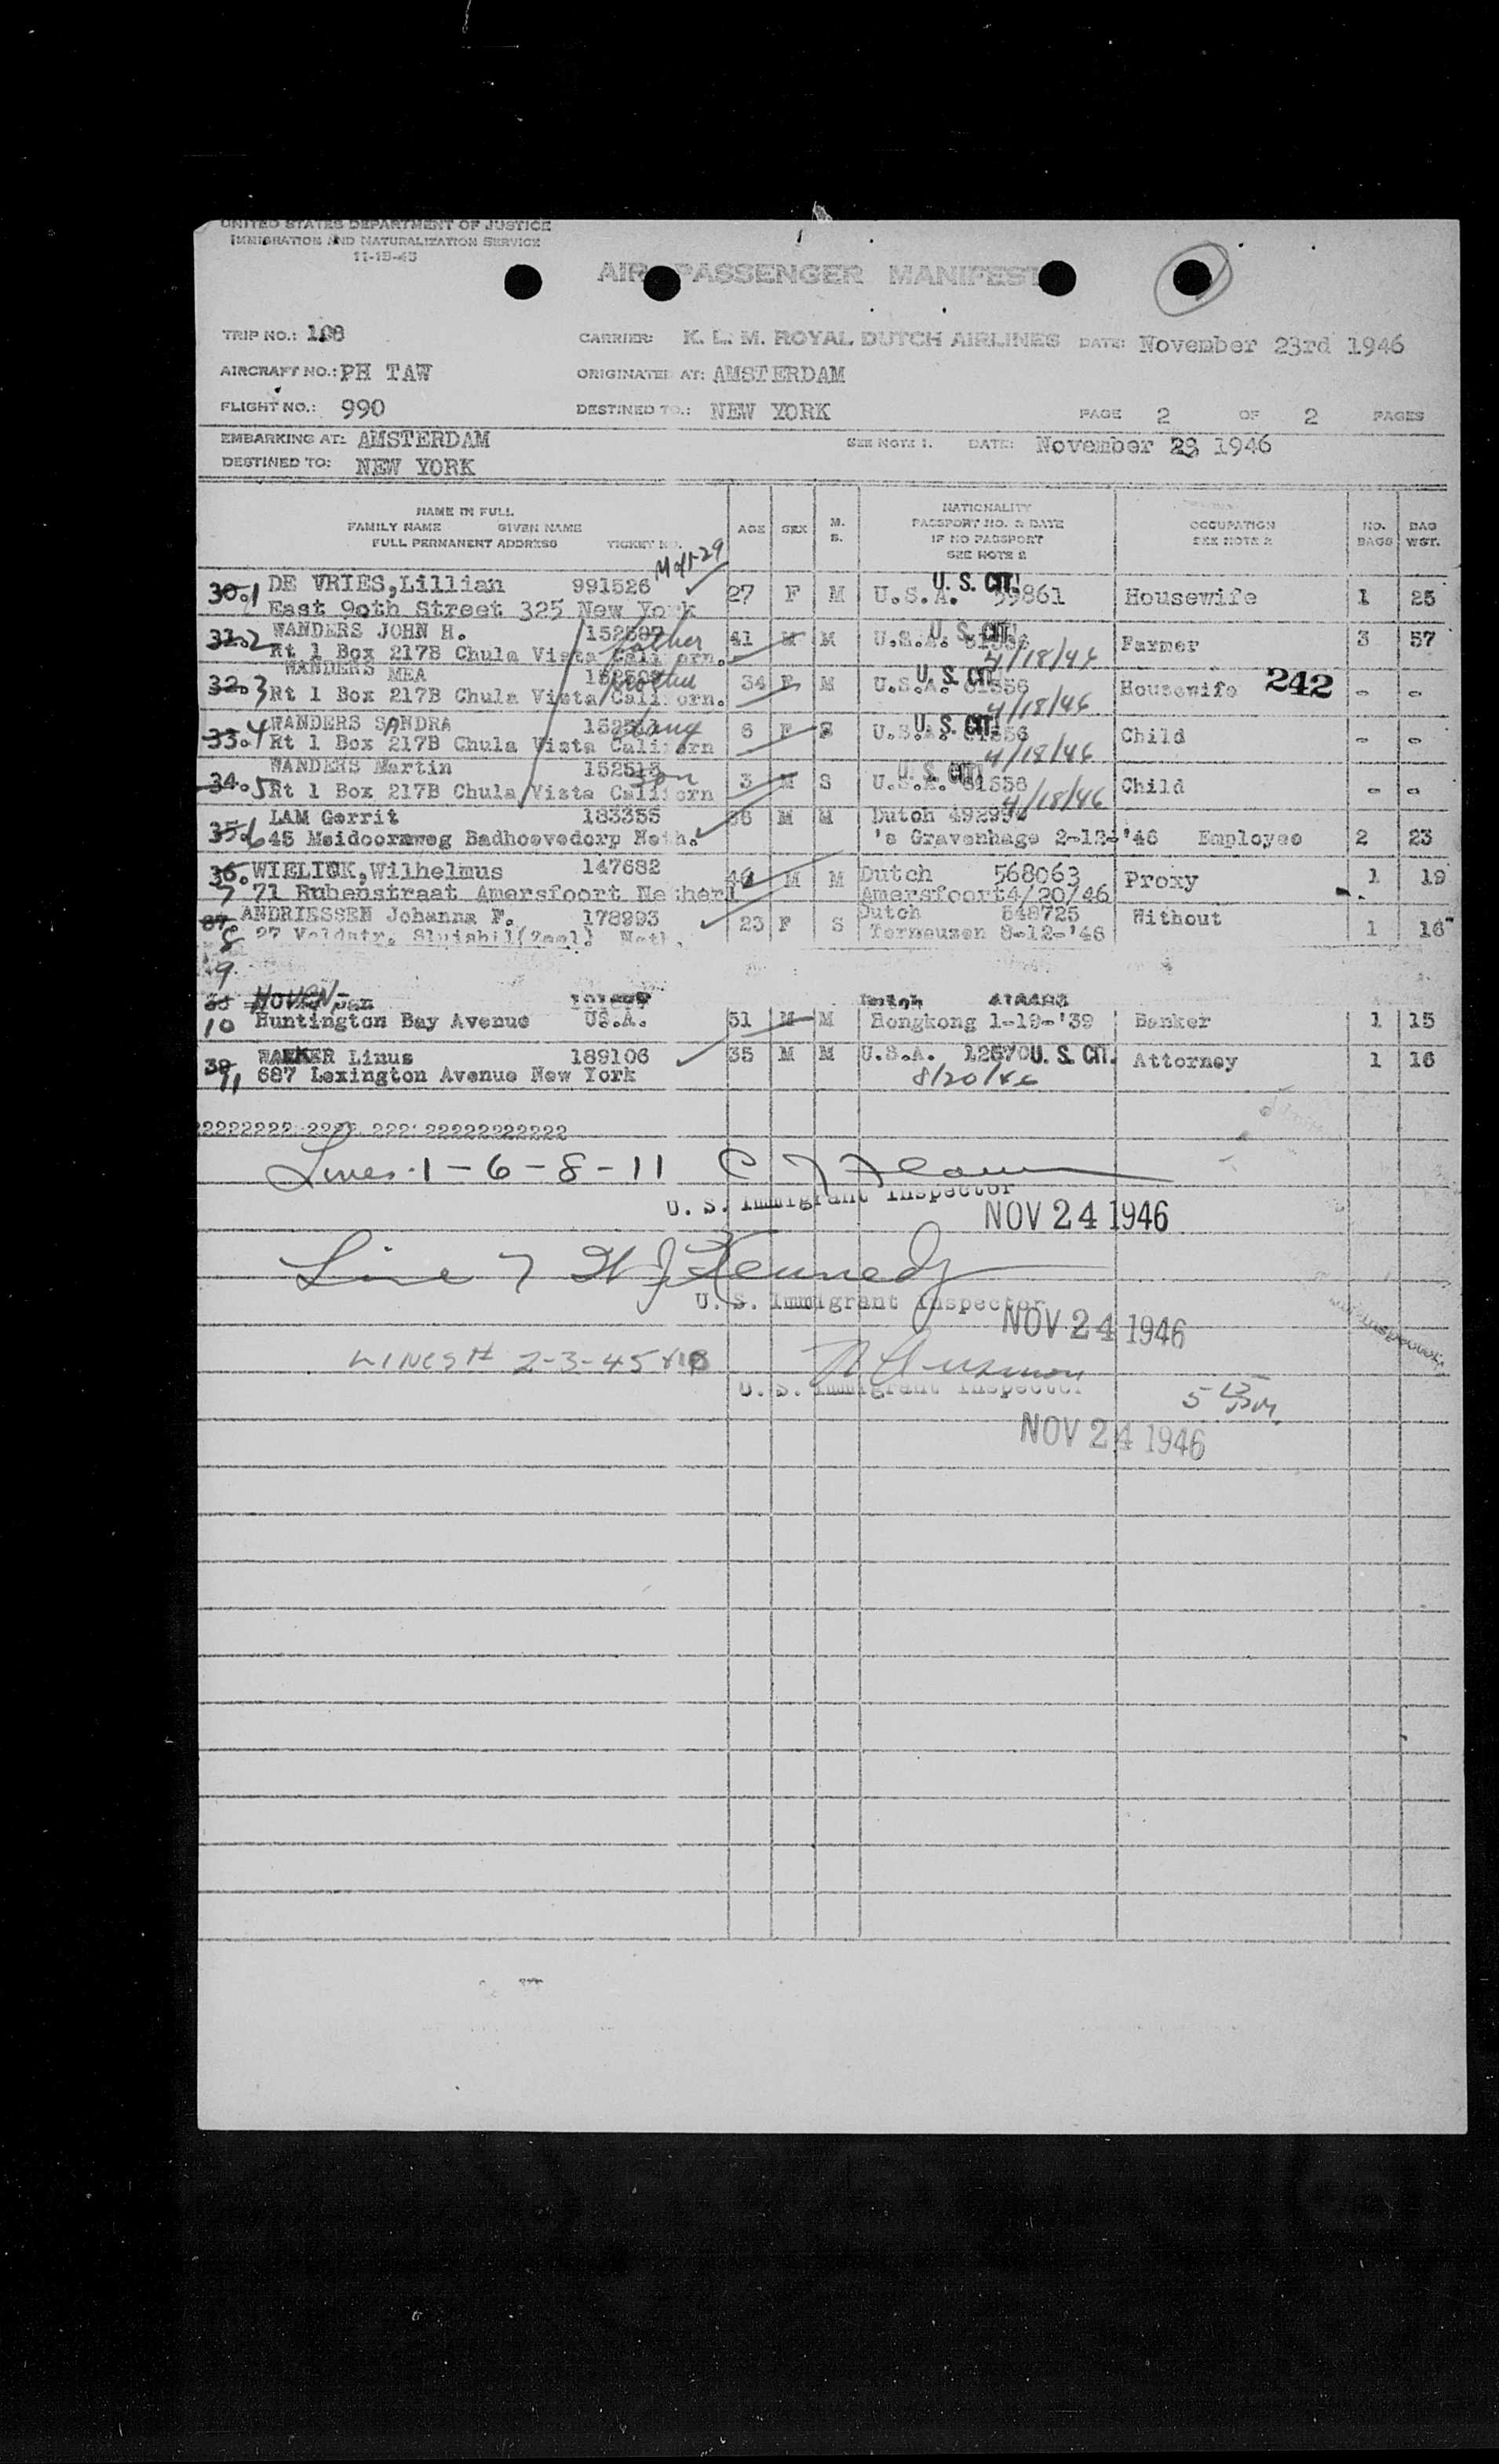 UNITED STATES DEPARTMENT OF JUSTICE
IMMIGRATION AND NATURALIZATION SERVICE
11-15-45
AIR PASSENGER MANIFEST
TRIP NO.: 108 CARRIER: K. L. M. ROYAL DUTCH AIRLINES DATE: November 23rd 1946
AIRCRAFT NO.: PH TAW ORIGINATED AT: AMSTERDAM
FLIGHT NO.: 990 DESTINED TO.: NEW YORK PAGE 2 OF 2 PAGES
EMBARKING AT: AMSTERDAM SEE NOTE 1. DATE: November 23 1946
DESTINED TO: NEW YORK
NAME IN FULL
FAMILY NAME GIVEN NAME
FULL PERMANENT ADDRESS TICKET NO.
AGE SEX M. S.
NATIONALITY
PASSPORT NO. & DATE
IF NO PASSPORT
SEE NOTE 2
OCCUPATION
SEE NOTE 2
NO. BAGS
BAG WGT.
30.1 DE VRIES, Lillian 991526 27 F M U.S.A. 59861 U. S. CIT. Housewife 1 25
East 90th Street 325 New York
31.2 WANDERS JOHN H. father 41 M M U.S.A. U. S. CIT. Farmer 3 57
Rt 1 Box 217B Chula Vista Californ. 4/18/46
32.3 WANDERS MEA mother 34 F M U.S.A. U. S. CIT. Housewife 242 - -
Rt 1 Box 217B Chula Vista Californ. 4/18/46
33.4 WANDERS SANDRA 6 F S U.S.A. U. S. CIT. Child - -
Rt 1 Box 217B Chula Vista Californ 4/18/46
34.5 WANDERS Martin 152513 son 3 M S U.S.A. U. S. CIT. Child - -
Rt 1 Box 217B Chula Vista Californ 4/18/46
35.6 LAM Gerrit 183355 36 M M Dutch
45 Meidoornweg Badhoevedorp Neth. 's Gravenhage 2-12-'46 Employee 2 23
36.7 WIELINK, Wilhelmus 147682 M M Dutch 568063 Proxy 1 19
71 Rubenstraat Amersfoort Netherl Amersfoort 4/20/46
37.8 ANDRIESSEN Johanna F. 178993 23 F S Dutch 548725 Without 1 16
27 Veldstr. Sluiskil(Zeel) Neth. Terneuzen 8-12-'46
9
10 HOVEN Jan Dutch
Huntington Bay Avenue U.S.A. 51 M M Hongkong 1-19-'39 Banker 1 15
39 11 WALKER Linus 189106 35 M M U.S.A. 12670 U. S. CIT. Attorney 1 16
687 Lexington Avenue New York 8/20/46
Lines 1-6-8-11
U. S. Immigrant Inspector
NOV 24 1946
Line 7 H J Kennedy
U. S. Immigrant Inspector
NOV 24 1946
LINES # 2-3-4-5 & 10
U. S. Immigrant Inspector
5 15 PM.
NOV 24 1946